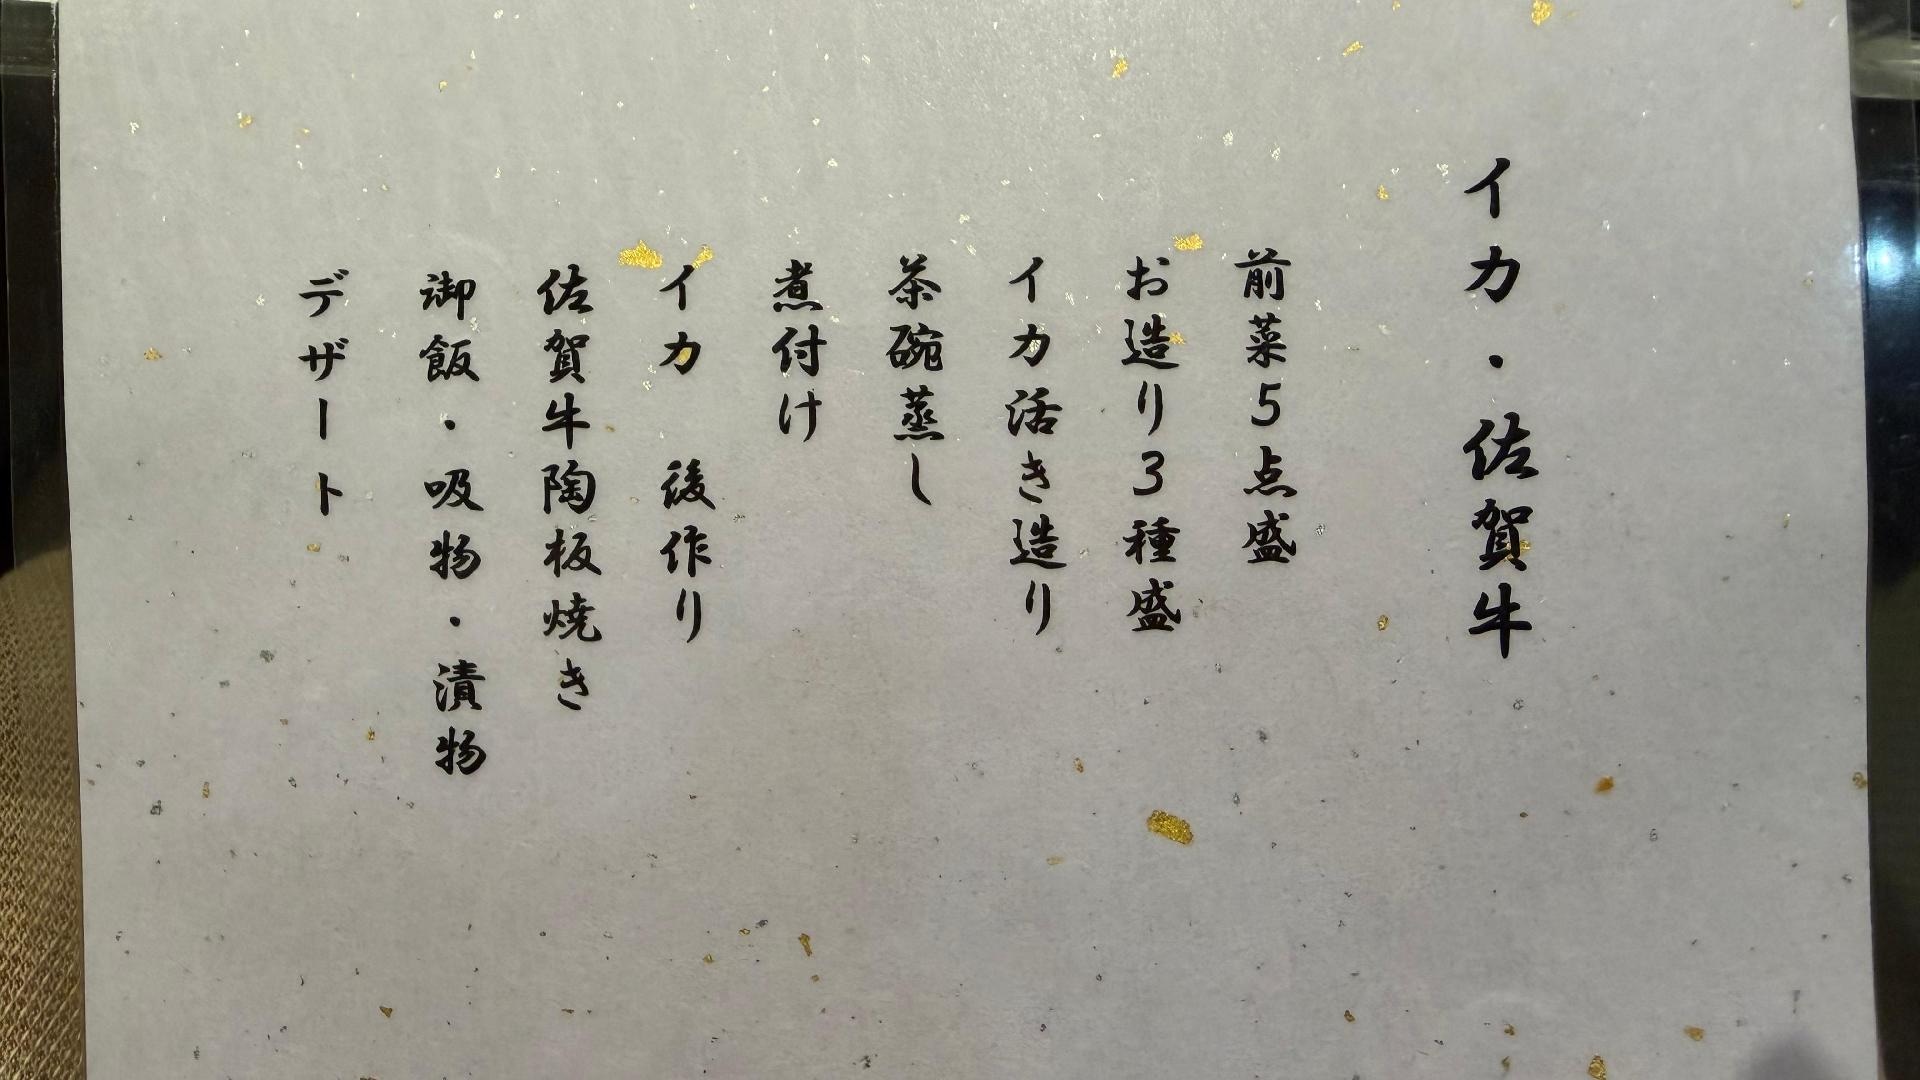 イカ・佐賀牛
前菜5点盛
お造り3種盛
イカ活き造り
茶碗蒸し
煮付け
イカ　後作り
佐賀牛陶板焼き
御飯・吸物・漬物
デザート